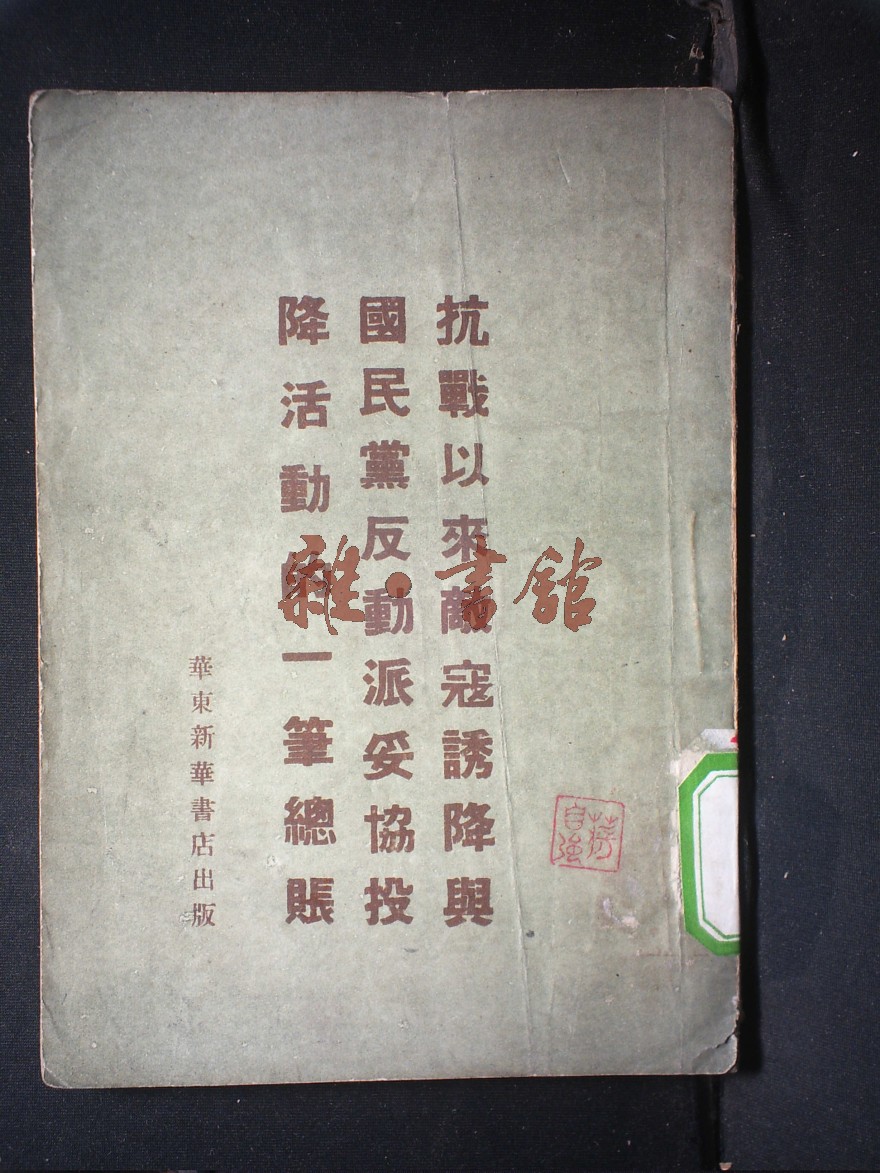 抗戰以來敵寇誘降與
國民黨反動派妥協投
降活動的一筆總賬
華東新華書店出版
雜·書館
蔣自強